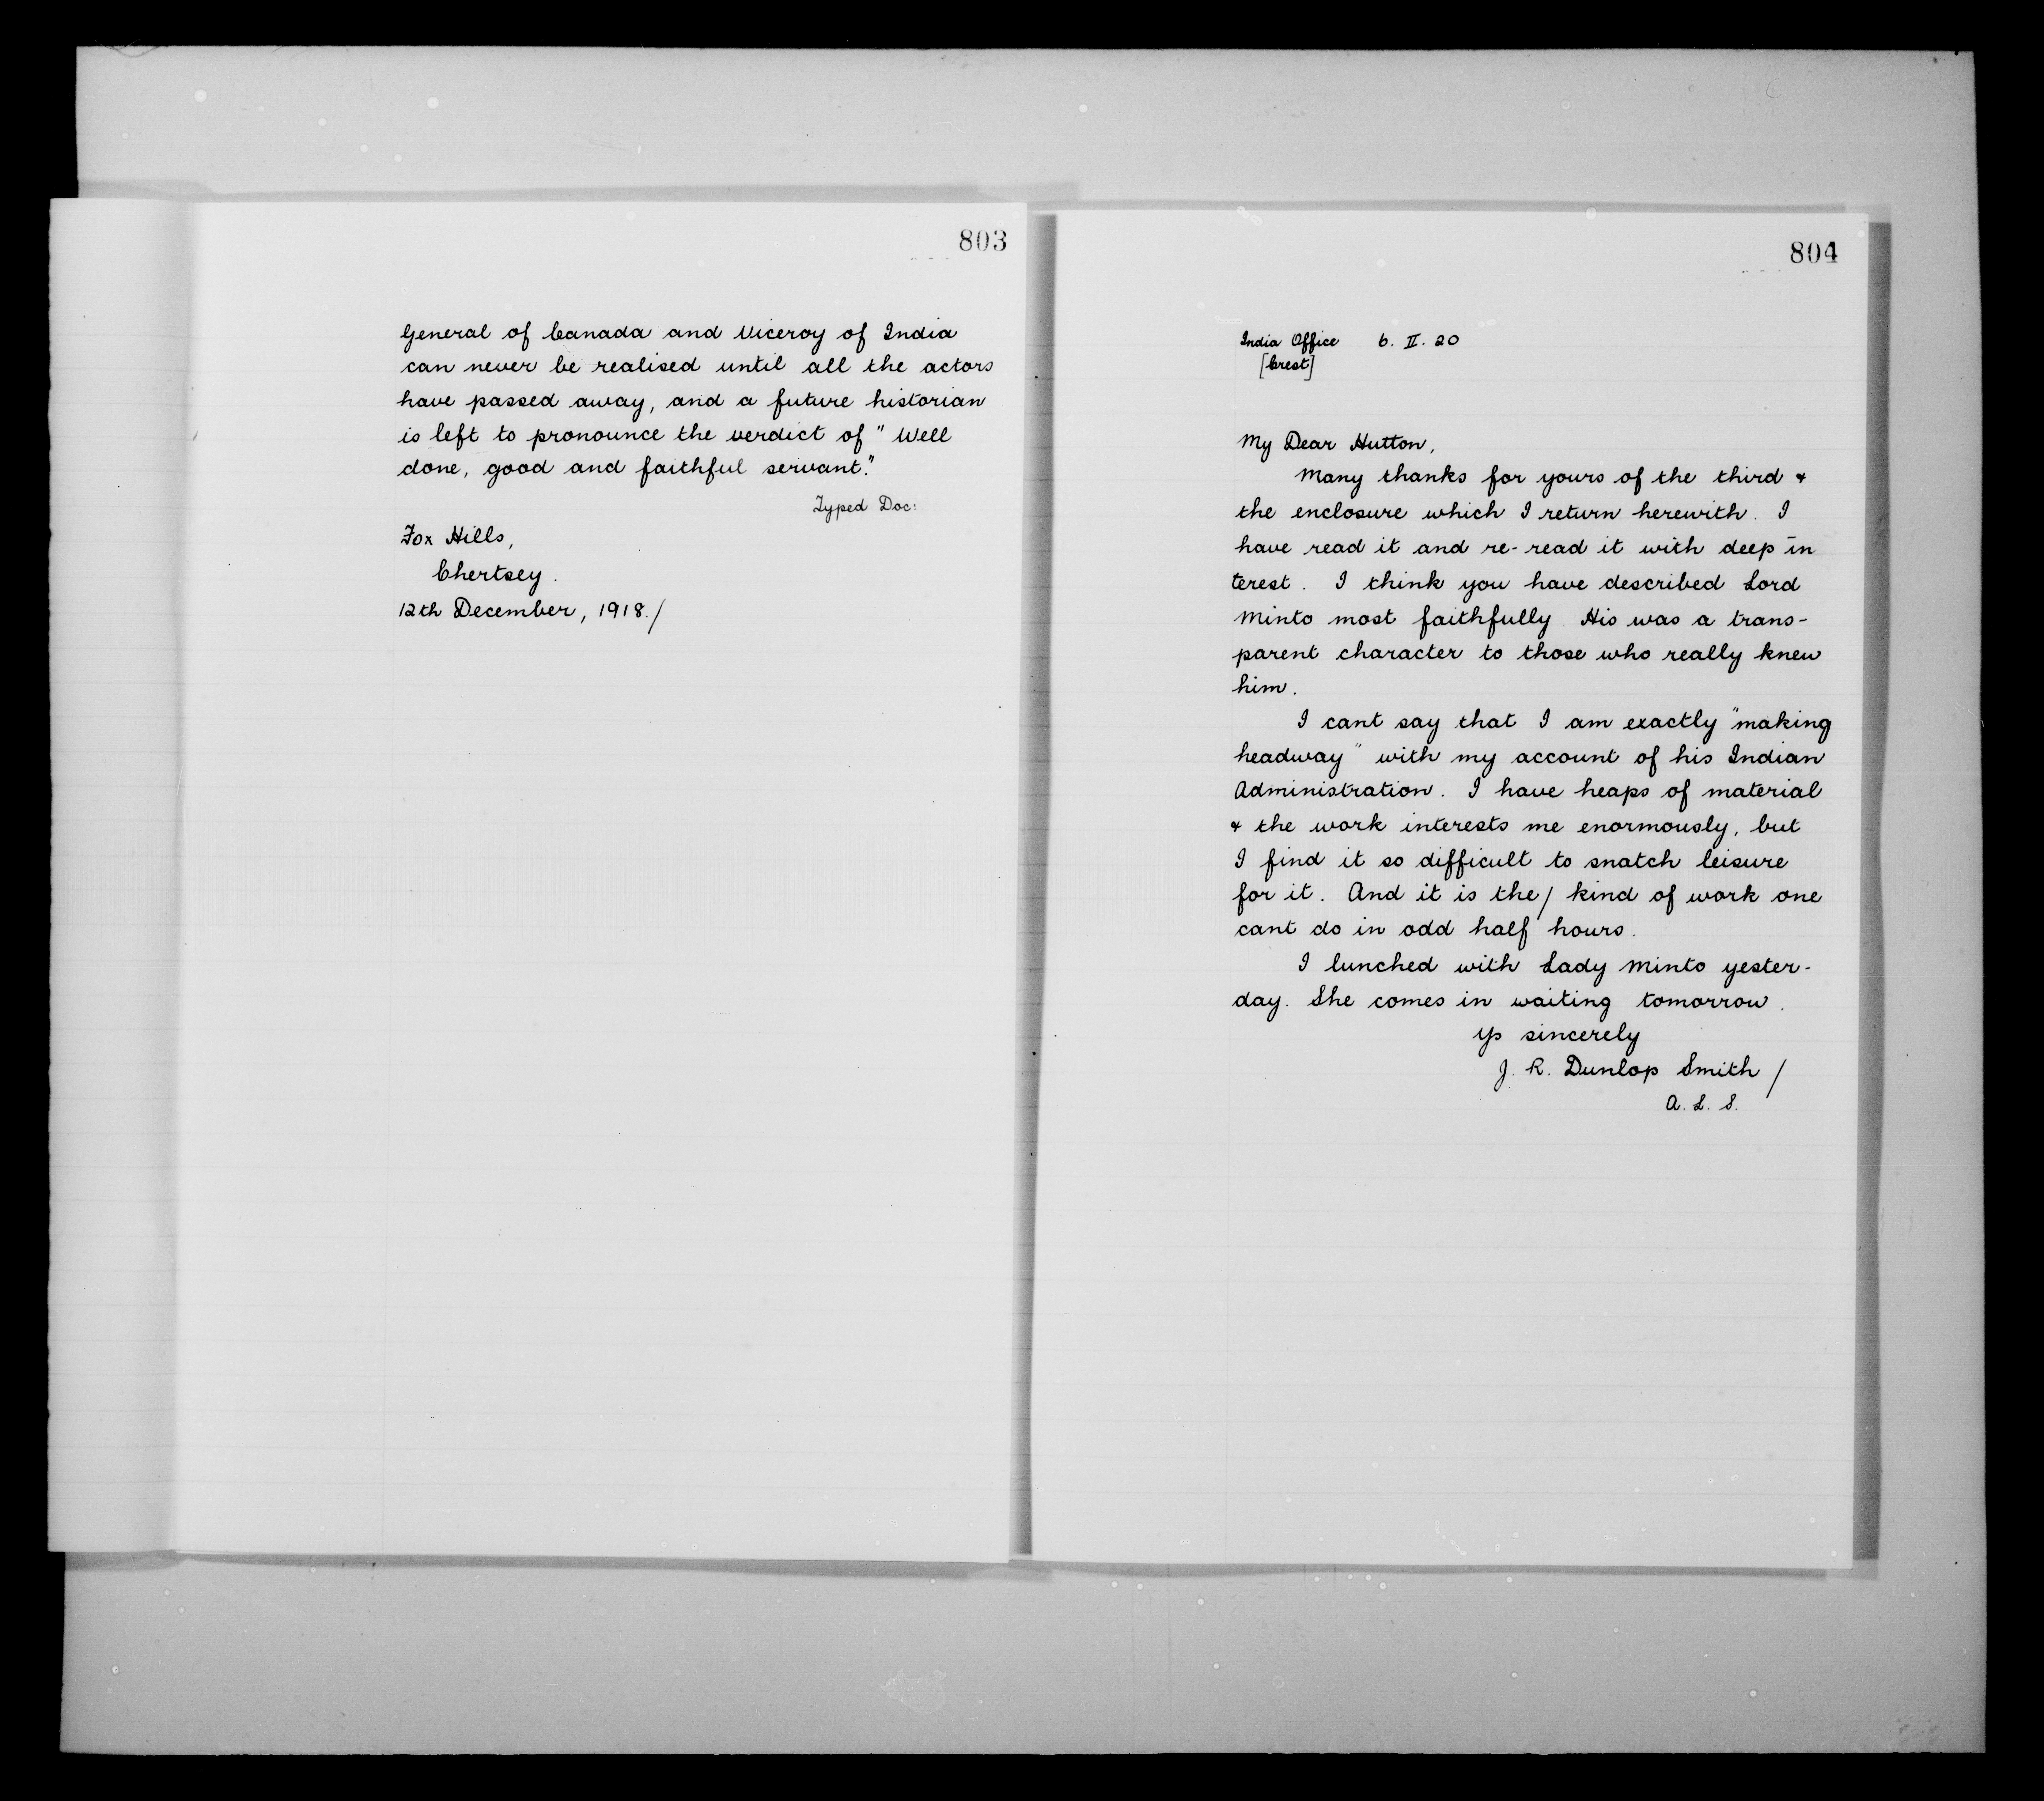 803
General of Canada and Viceroy of India
can never be realised until all the actors
have passed away, and a future historian
is left to pronounce the verdict of "Well
done, good and faithful servant."
Typed Doc:
Fox Hills,
Chertsey.
12th December, 1918./
804
India Office 6. II. 20
[Crest]
My Dear Hutton,
Many thanks for yours of the third &
the enclosure which I return herewith. I
have read it and re-read it with deep in
terest. I think you have described Lord
Minto most faithfully His was a trans-
parent character to those who really knew
him.
I cant say that I am exactly "making
headway" with my account of his Indian
Administration. I have heaps of material
& the work interests me enormously, but
I find it so difficult to snatch leisure
for it. And it is the/ kind of work one
cant do in odd half hours.
I lunched with Lady Minto yester-
day. She comes in waiting tomorrow.
Yrs sincerely
J. R. Dunlop Smith /
A. L. S.